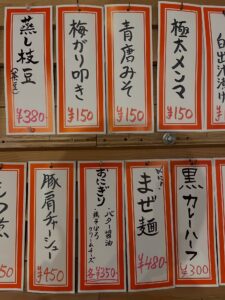 蒸し枝豆
¥380
梅がり叩き
¥150
青唐みそ
¥150
極太メンマ
¥150
白出汁漬け
50
豚肩チャーシュー
¥450
おにぎり
・バター醤油
・鶏そぼろ
・クリームチーズ
各¥350
まぜ麺
¥480
黒カレーハーフ
¥300